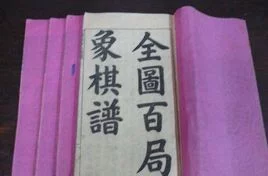 全圖百局
象棋譜